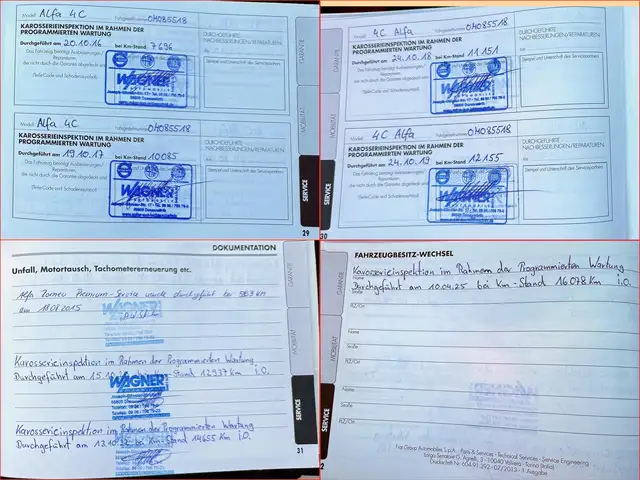 Modell Alfa 4C Fahrgestellnummer 0M085518
KAROSSERIEINSPEKTION IM RAHMEN DER
PROGRAMMIERTEN WARTUNG
Durchgeführt am 20.10.16 bei Km-Stand 7696
DURCHGEFÜHRTE
NACHBESSERUNGEN/REPARATUREN
Das Fahrzeug benötigt Ausbesserungen/
Reparaturen,
die nicht durch die Garantie abgedeckt sind
(Teile-Code und Schadensymbol)
Stempel und Unterschrift des Servicepartners
WAGNER
Modell Alfa 4C Fahrgestellnummer 0M085518
KAROSSERIEINSPEKTION IM RAHMEN DER
PROGRAMMIERTEN WARTUNG
Durchgeführt am 19.10.17 bei Km-Stand 10085
DURCHGEFÜHRTE
NACHBESSERUNGEN/REPARATUREN
Das Fahrzeug benötigt Ausbesserungen/
Reparaturen,
die nicht durch die Garantie abgedeckt sind
(Teile-Code und Schadensymbol)
Stempel und Unterschrift des Servicepartners
WAGNER
GARANTIE
MOBILITÄT
SERVICE
29
Modell 4C Alfa Fahrgestellnummer 0M085518
KAROSSERIEINSPEKTION IM RAHMEN DER
PROGRAMMIERTEN WARTUNG
Durchgeführt am 24.10.18 bei Km-Stand 11151
DURCHGEFÜHRTE
NACHBESSERUNGEN/REPARATUREN
Das Fahrzeug benötigt Ausbesserungen/
Reparaturen,
die nicht durch die Garantie abgedeckt sind
(Teile-Code und Schadensymbol)
Stempel und Unterschrift des Servicepartners
WAGNER
Modell 4C Alfa Fahrgestellnummer 0M085518
KAROSSERIEINSPEKTION IM RAHMEN DER
PROGRAMMIERTEN WARTUNG
Durchgeführt am 24.10.19 bei Km-Stand 12155
DURCHGEFÜHRTE
NACHBESSERUNGEN/REPARATUREN
Das Fahrzeug benötigt Ausbesserungen/
Reparaturen,
die nicht durch die Garantie abgedeckt sind
(Teile-Code und Schadensymbol)
Stempel und Unterschrift des Servicepartners
WAGNER
GARANTIE
MOBILITÄT
SERVICE
30
DOKUMENTATION
Unfall, Motortausch, Tachometererneuerung etc.
Alfa Romeo Premium-Service wurde durchgeführt bei KM
am 2015
WAGNER
Karosserieinspektion im Rahmen der Programmierten Wartung
Durchgeführt am 15.10 Stand 12937 Km i.O.
WAGNER
Karosserieinspektion im Rahmen der Programmierten Wartung
Durchgeführt am 13.10 bei Km-Stand 14655 Km i.O.
GARANTIE
MOBILITÄT
SERVICE
31
FAHRZEUGBESITZ-WECHSEL
Karosserieinspektion im Rahmen der Programmierten Wartung
Durchgeführt am 10.04.25 bei Km-Stand 16078 Km i.O.
PLZ/Ort
Name
Straße
PLZ/Ort
Name
Straße
PLZ/Ort
GARANTIE
MOBILITÄT
SERVICE
2
Fiat Group Automobiles S.p.A. - Parts & Services - Technical Services - Service Engineering
Largo Senatore G. Agnelli, 3 - 10040 Volvera - Torino (Italia)
Druckschrift Nr. 604.91.392 - 07/2013 - 1. Ausgabe